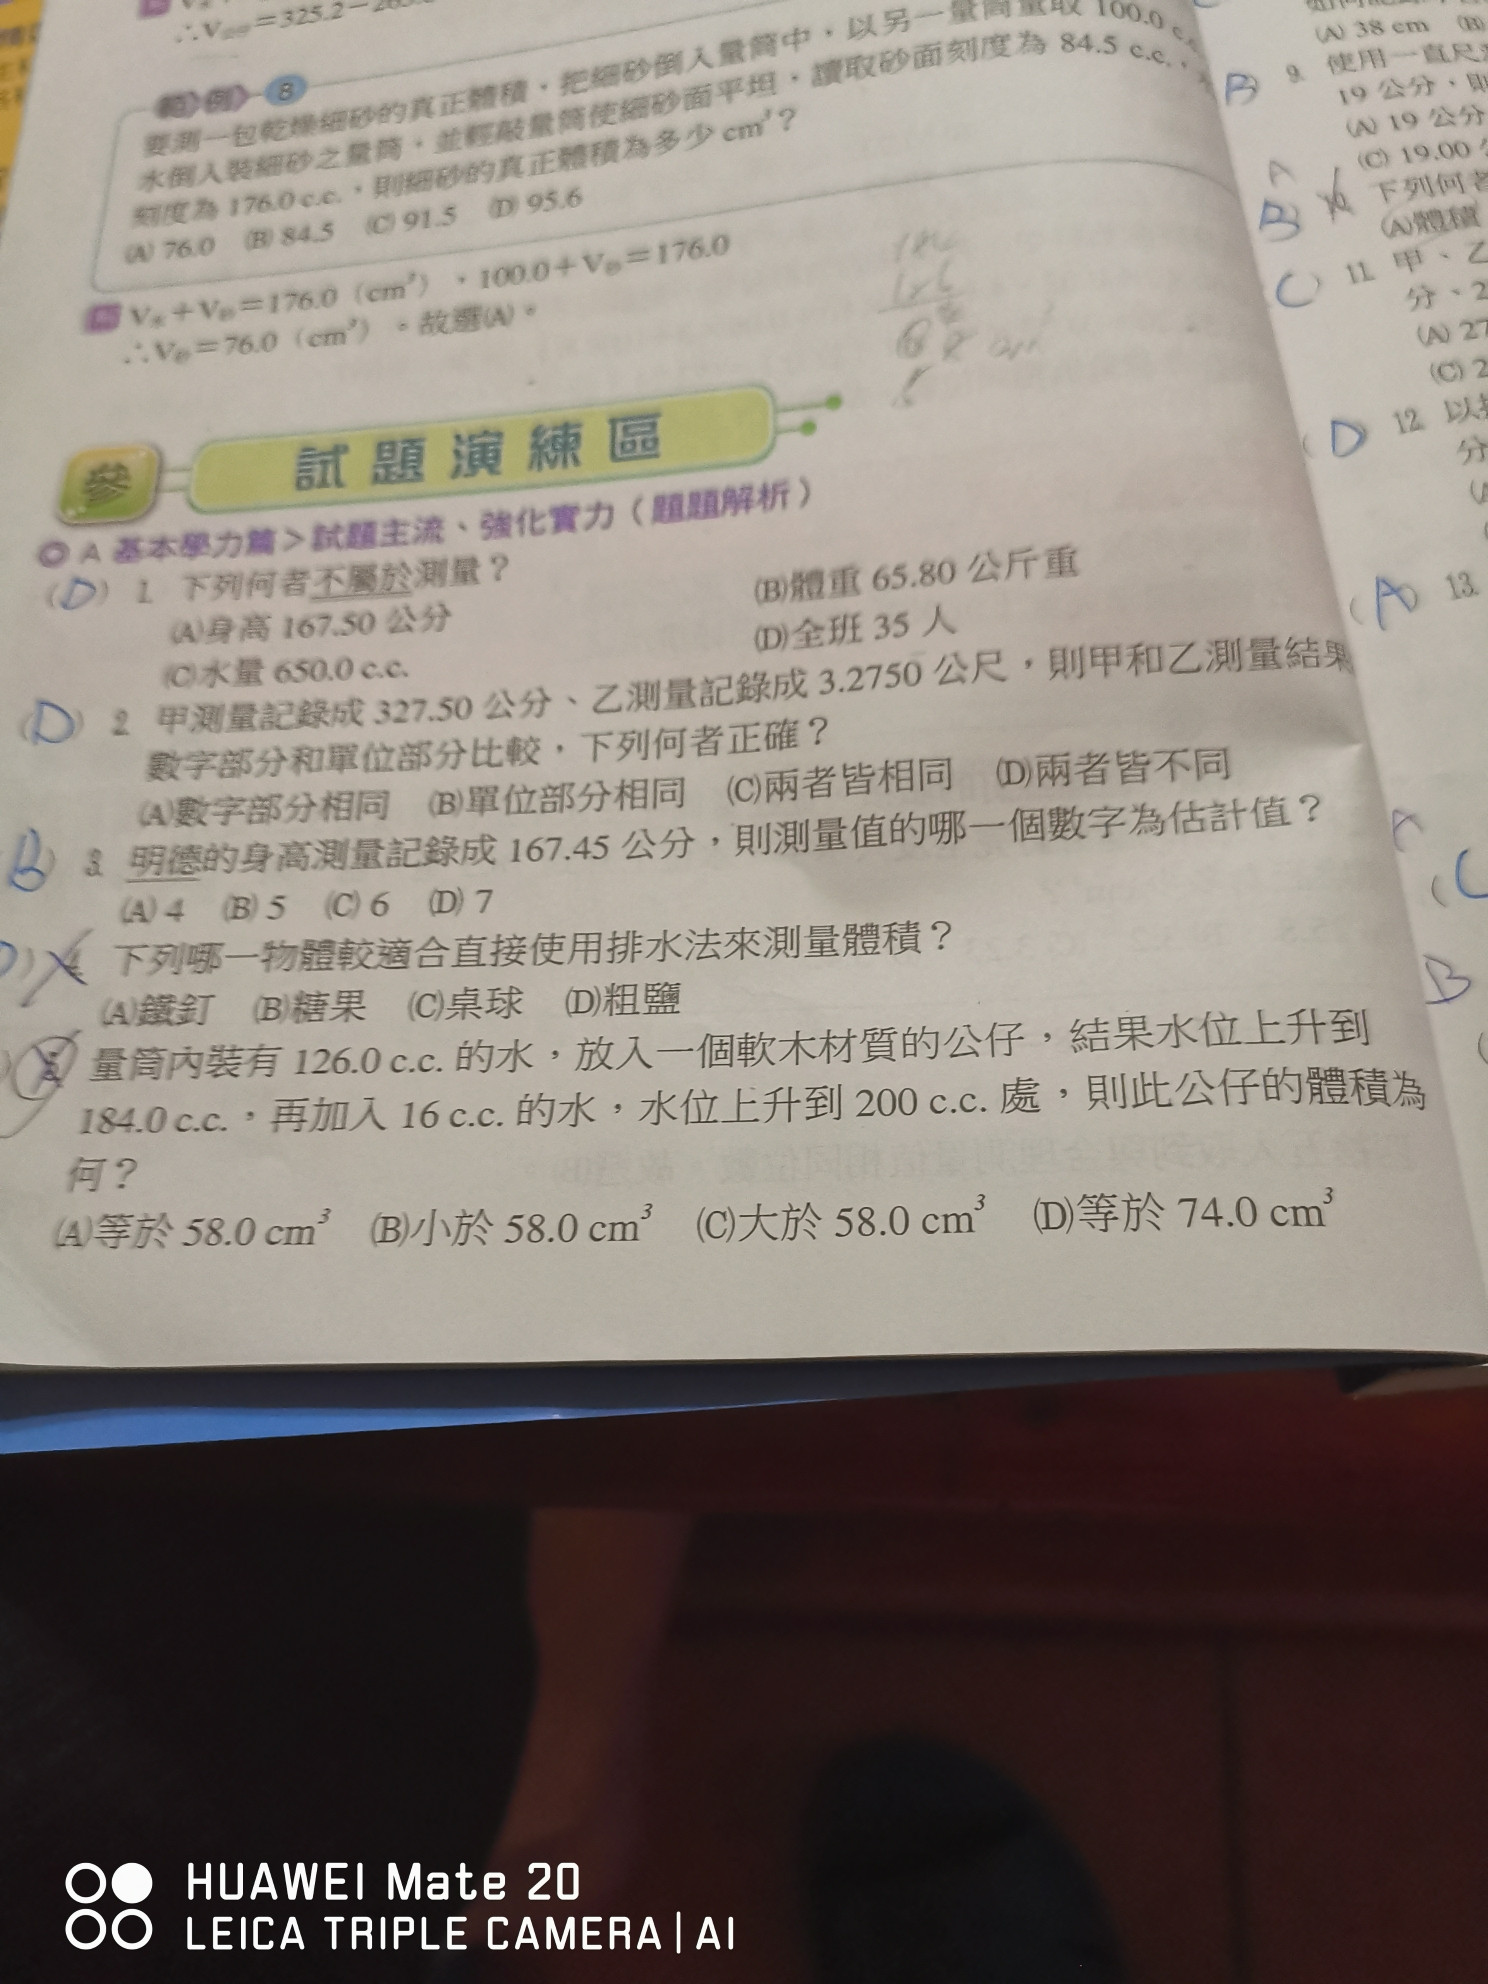 ∴V=325.2-
範例 8
要測一包乾燥細砂的真正體積,把細砂倒入量筒中,以另一量筒量取 100.0 c.c.
水倒入裝細砂之量筒,並輕敲量筒使細砂面平坦,讀取砂面刻度為 84.5 c.c.,
刻度為 176.0 c.c.,則細砂的真正體積為多少 cm³?
(A) 76.0 (B) 84.5 (C) 91.5 (D) 95.6
V水+V砂=176.0(cm³),100.0+V砂=176.0
∴V砂=76.0(cm³)。故選(A)。
參 試題演練區
A 基本學力篇>試題主流、強化實力(題題解析)
(D) 1. 下列何者不屬於測量?
(A)身高 167.50 公分 (B)體重 65.80 公斤重
(C)水量 650.0 c.c. (D)全班 35 人
(D) 2. 甲測量記錄成 327.50 公分、乙測量記錄成 3.2750 公尺,則甲和乙測量結果
數字部分和單位部分比較,下列何者正確?
(A)數字部分相同 (B)單位部分相同 (C)兩者皆相同 (D)兩者皆不同
B) 3. 明德的身高測量記錄成 167.45 公分,則測量值的哪一個數字為估計值?
(A) 4 (B) 5 (C) 6 (D) 7
) 4. 下列哪一物體較適合直接使用排水法來測量體積?
(A)鐵釘 (B)糖果 (C)桌球 (D)粗鹽
) 5. 量筒內裝有 126.0 c.c. 的水,放入一個軟木材質的公仔,結果水位上升到
184.0 c.c.,再加入 16 c.c. 的水,水位上升到 200 c.c. 處,則此公仔的體積為
何?
(A)等於 58.0 cm³ (B)小於 58.0 cm³ (C)大於 58.0 cm³ (D)等於 74.0 cm³
(A) 38 cm (B)
B 9. 使用一直尺
19 公分,則
(A) 19 公分
(C) 19.00
A
B 10. 下列何者
(A)體積
C) 11. 甲、乙
分、2
(A) 27
(C) 2
(D) 12. 以
分
(A) 13.
A
(C
B
HUAWEI Mate 20
LEICA TRIPLE CAMERA | AI